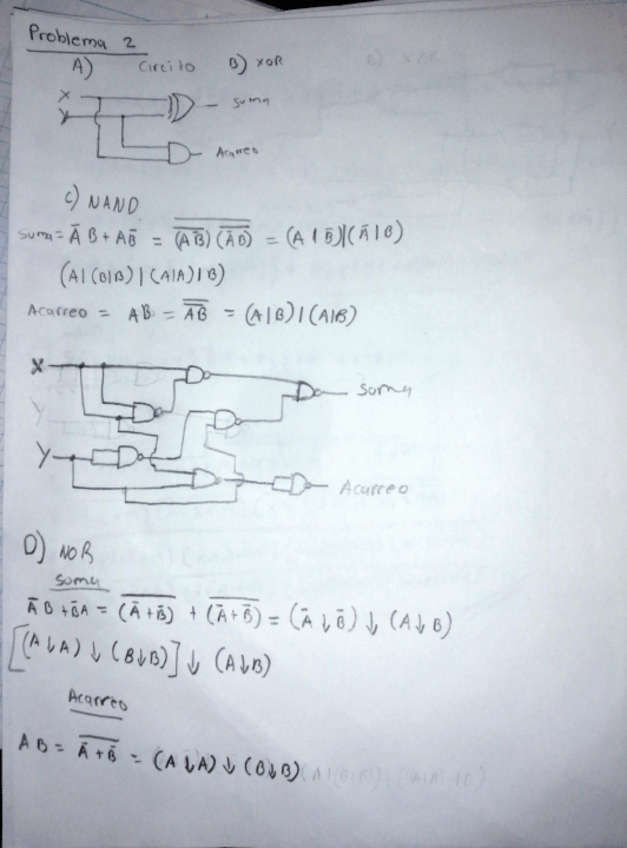 Problema 2
A) Circito B) XOR
X
Y
Suma
Acarreo
C) NAND
Suma = A̅ B + A B̅ = \overline{\overline{(A B̅)} \overline{(A̅ B)}} = (A | B̅) | (A̅ | B)
(A | (B|B) | (A|A) | B)
Acarreo = AB = \overline{\overline{AB}} = (A|B) | (A|B)
X
Suma
Y
Acarreo
D) NOR
Suma
A̅ B + B̅ A = \overline{(A̅ + B̅)} + \overline{(A̅ + B̅)} = (A̅ ↓ B̅) ↓ (A ↓ B)
[(A ↓ A) ↓ (B ↓ B)] ↓ (A ↓ B)
Acarreo
AB = \overline{A̅ + B̅} = (A ↓ A) ↓ (B ↓ B)